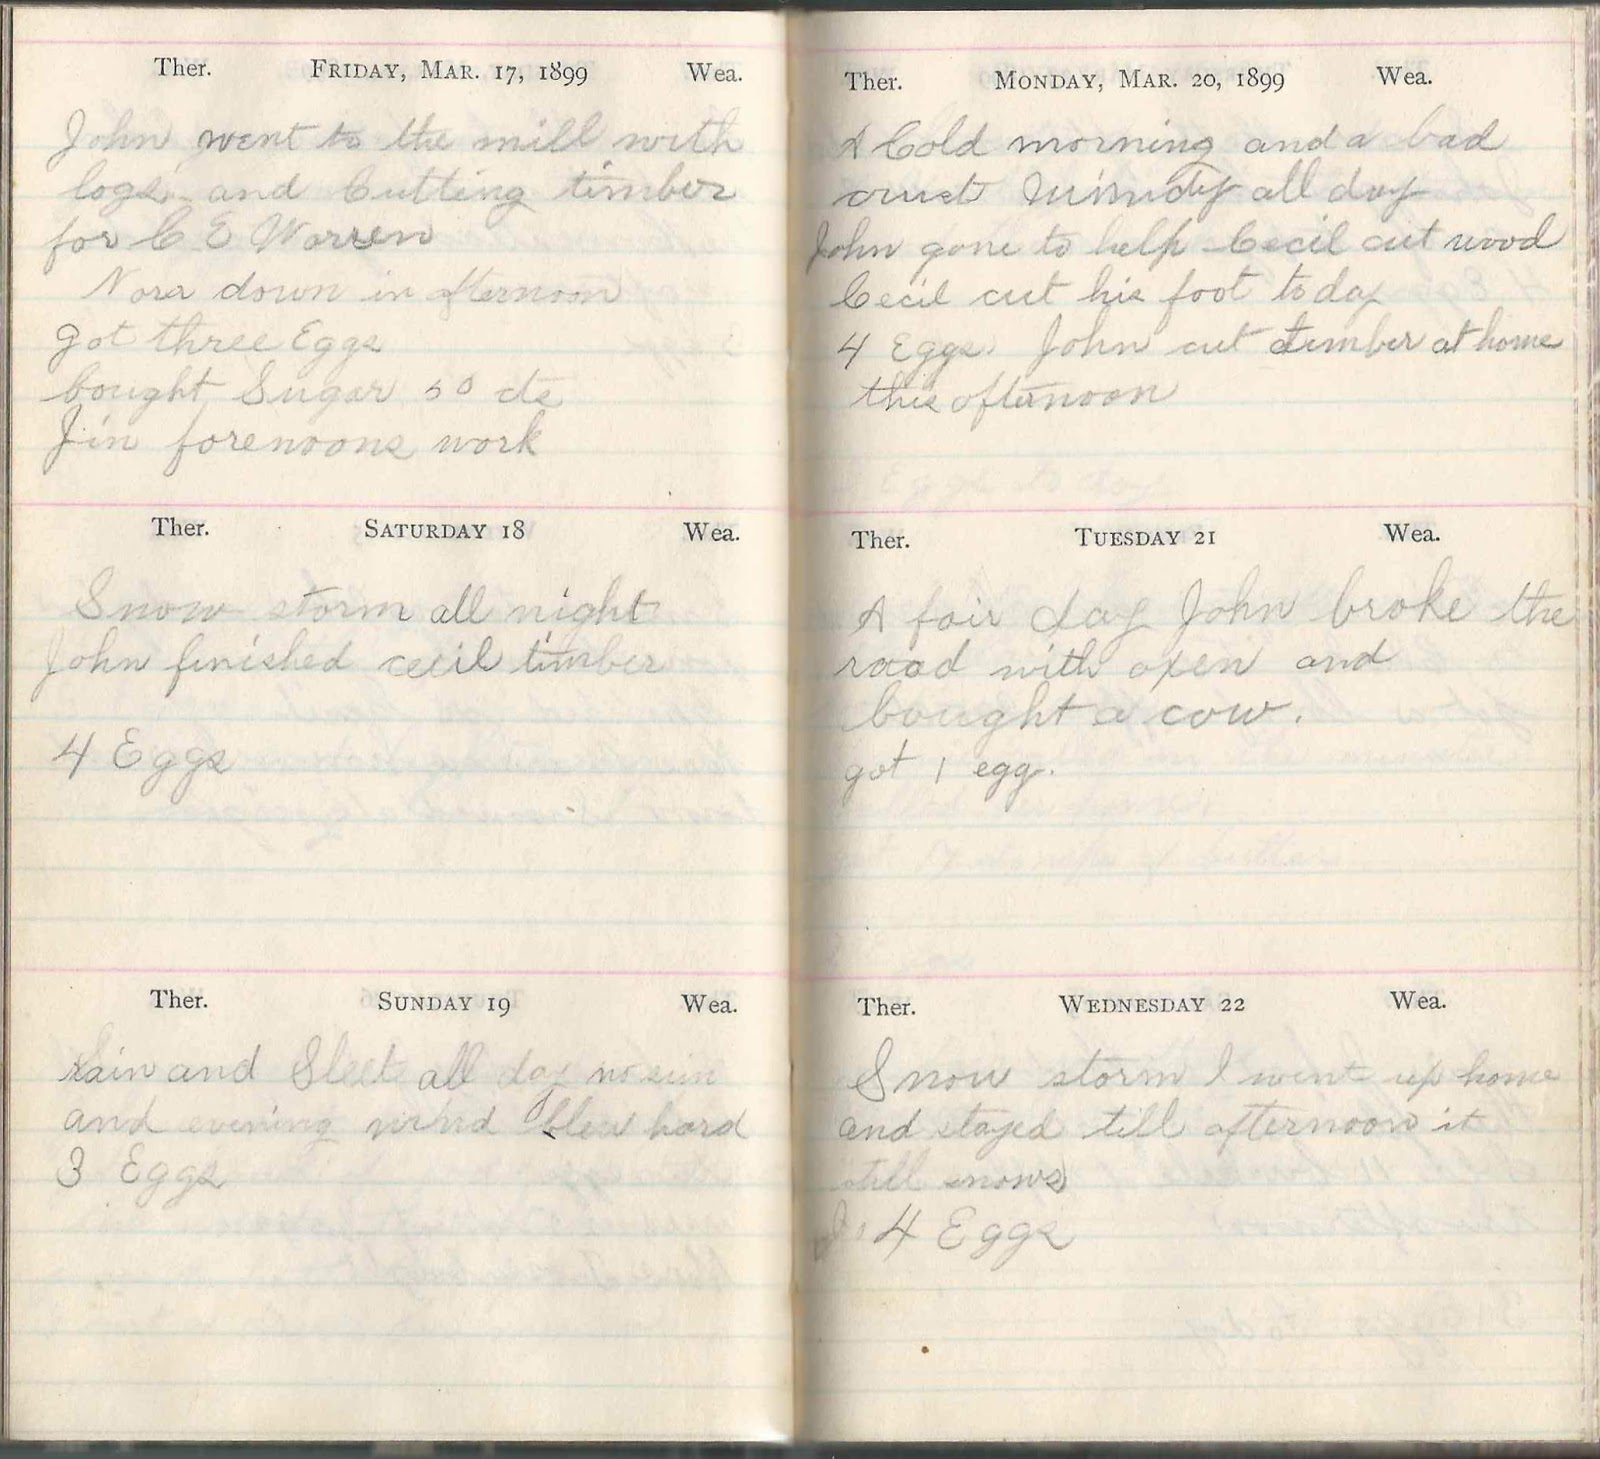 Ther. FRIDAY, MAR. 17, 1899 Wea.
John went to the mill with
logs and Cutting timber
for C E Warren
Nora down in afternoon
got three Eggs
bought Sugar 50 cts
forenoons work
Ther. SATURDAY 18 Wea.
Snow storm all night
John finished cecil timber
4 Eggs
Ther. SUNDAY 19 Wea.
Rain and Sleet all day no sun
and evening wind blew hard
3 Eggs
Ther. MONDAY, MAR. 20, 1899 Wea.
A Cold morning and a bad
crust Windy all day
John gone to help Cecil cut wood
Cecil cut his foot to day
4 Eggs. John cut timber at home
this afternoon
Ther. TUESDAY 21 Wea.
A fair day John broke the
road with oxen and
bought a cow.
got 1 egg.
Ther. WEDNESDAY 22 Wea.
Snow storm I went up home
and stayed till afternoon it
still snows
4 Eggs